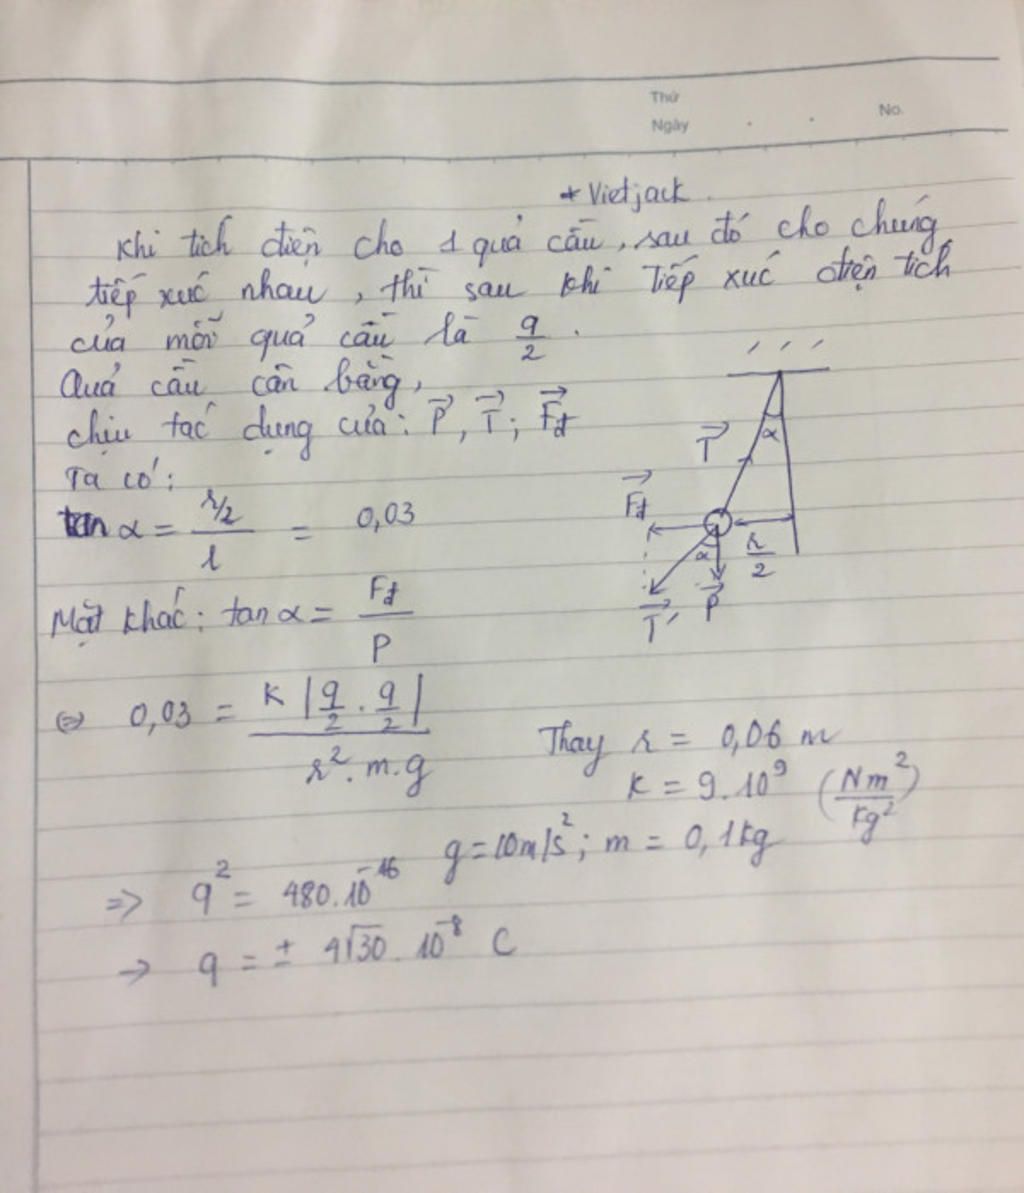 Thứ
Ngày
No.
* Vietjack.
Khi tích điện cho 1 quả cầu, sau đó cho chúng
tiếp xúc nhau, thì sau khi tiếp xúc điện tích
của mỗi quả cầu là q/2.
Quả cầu cân bằng,
chịu tác dụng của: P→, T→; Fđ→
Ta có:
tan α = (r/2)/l = 0,03
Mặt khác: tan α = Fđ/P
⇔ 0,03 = K|q/2 . q/2| / (r². m.g)
Thay r = 0,06 m
K = 9.10⁹ (Nm²/kg²)
g = 10m/s²; m = 0,1kg
=> q² = 480.10⁻¹⁶
→ q = ± 4√30. 10⁻⁸ C
α
T→
Fđ→
r/2
α
T→'
P→